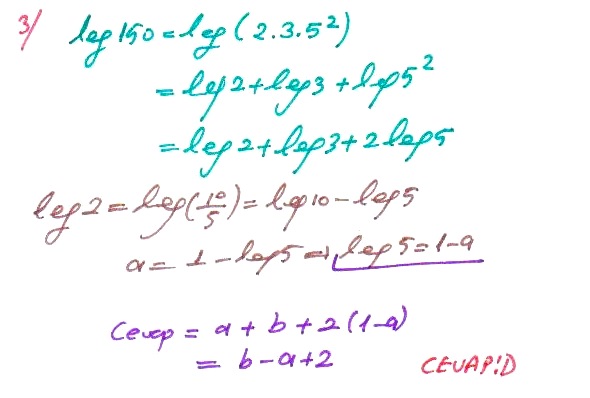 3/ log150 = log(2.3.5²)
= log2+log3+log5²
= log2+log3+2log5
log2 = log(10/5) = log10-log5
a = 1-log5 ⇒ log5 = 1-a
Cevap = a+b+2(1-a)
= b-a+2
CEVAP:D